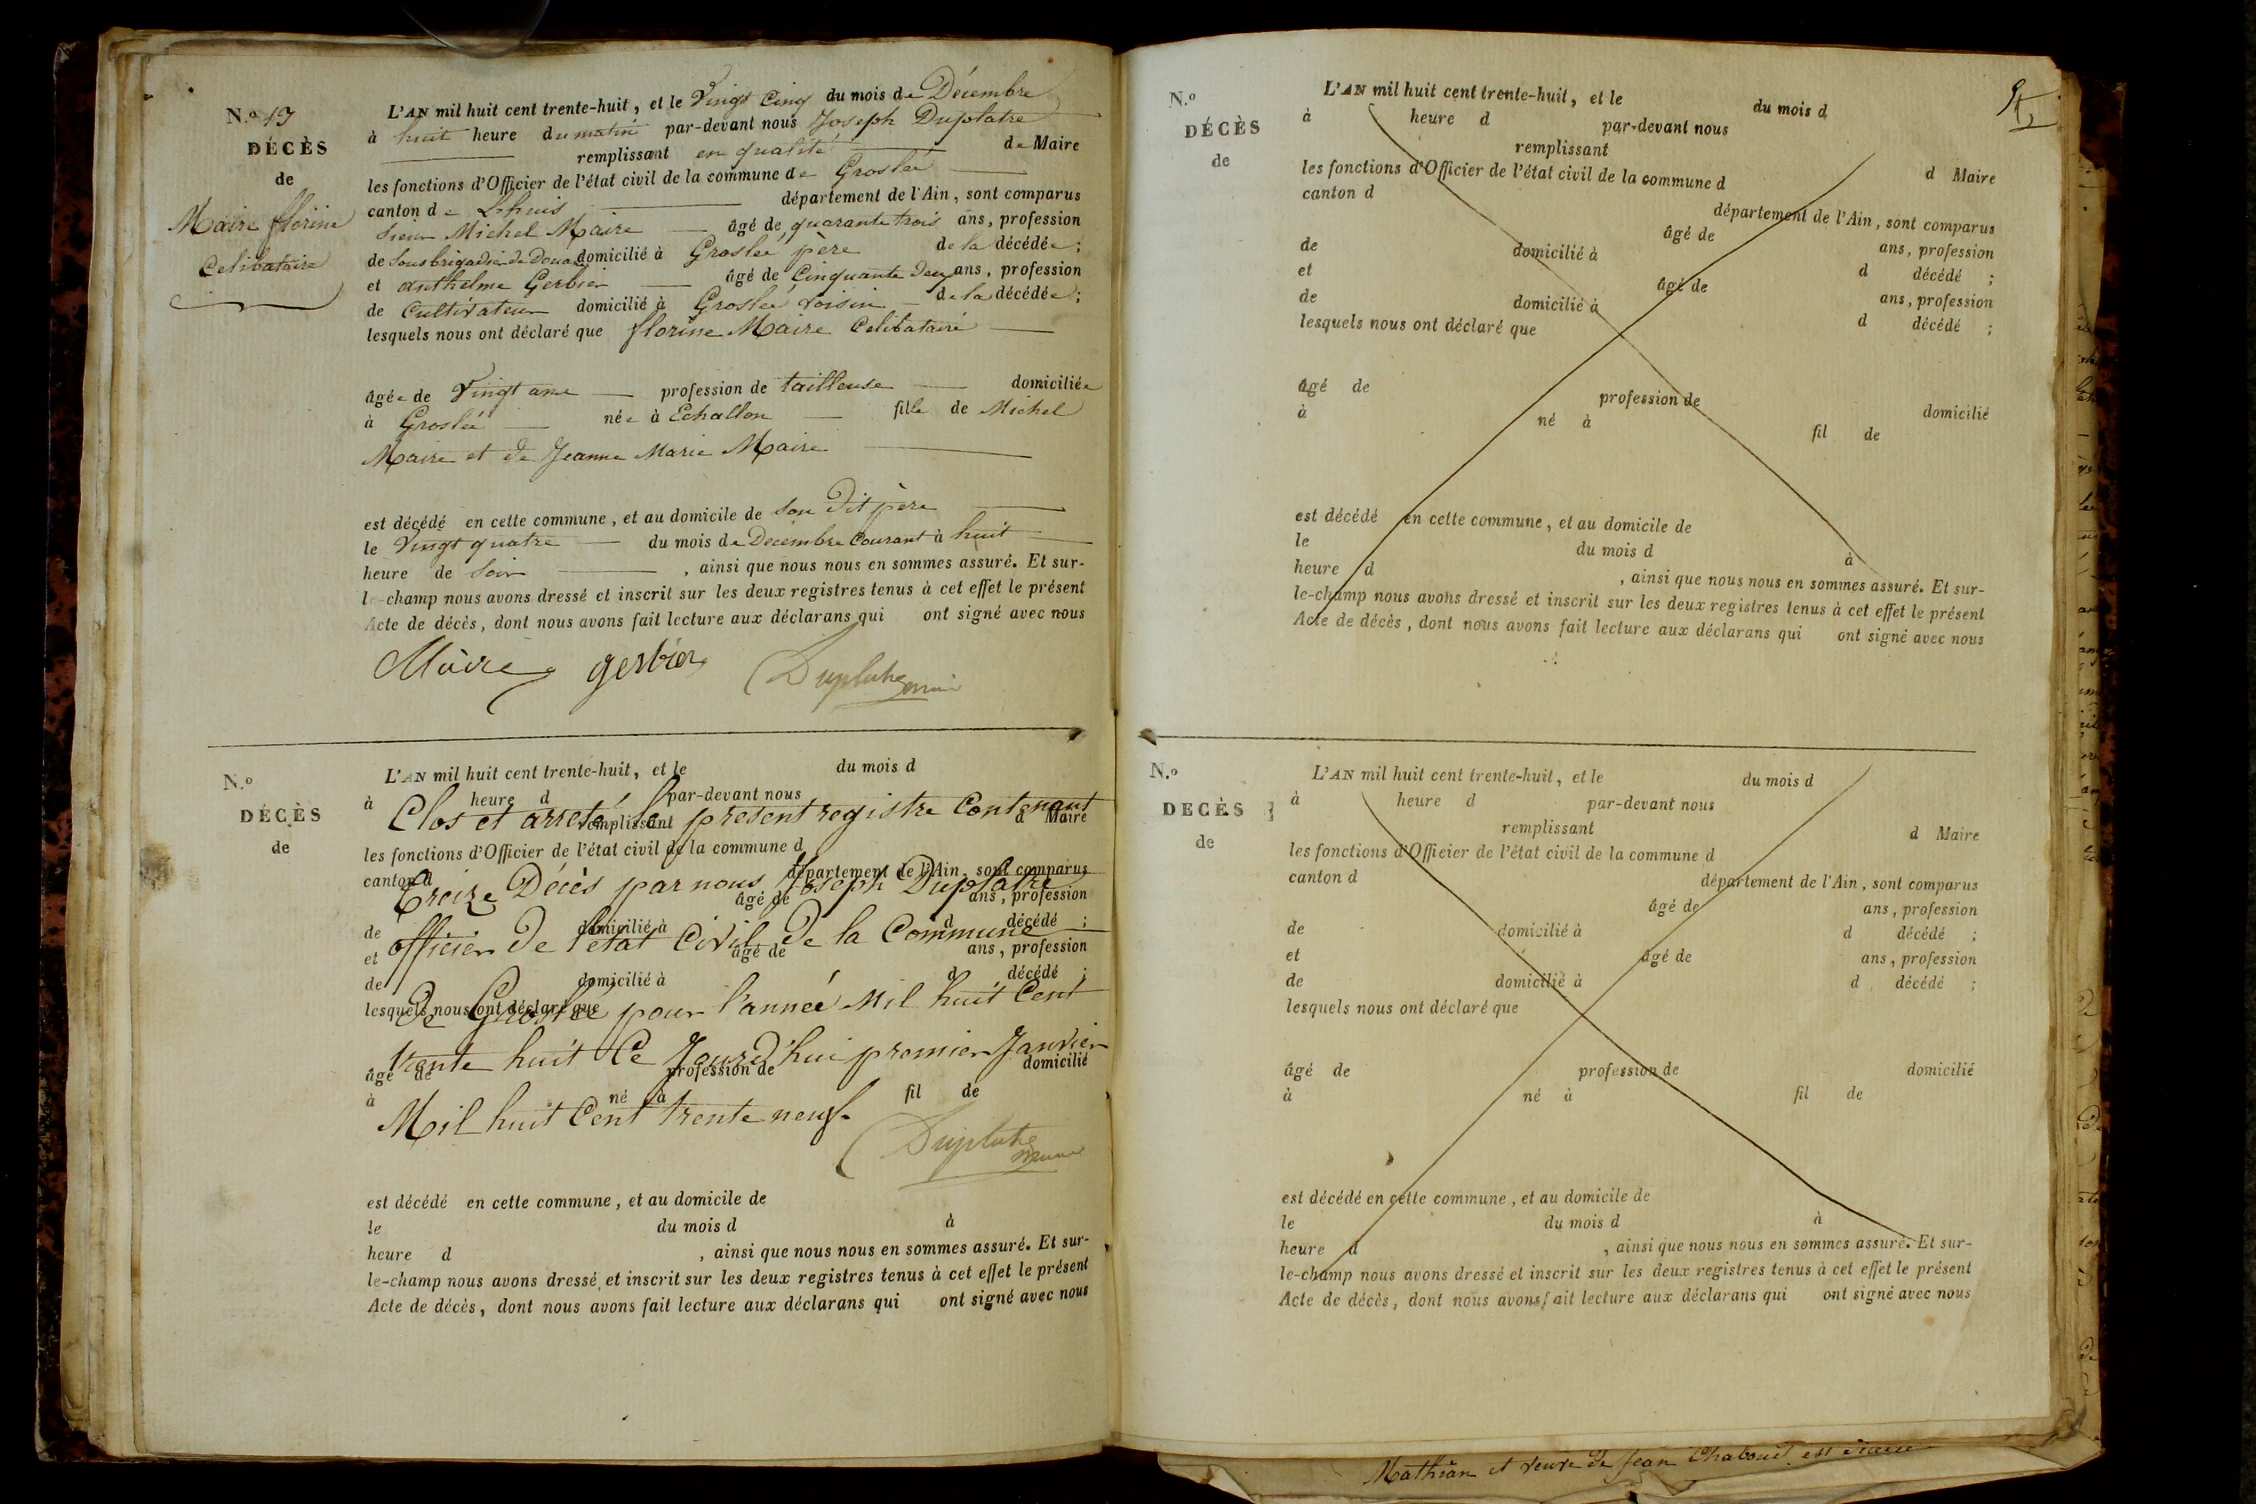 N.º 13
DÉCÈS
de
Maire florine
Celibataire
L'AN mil huit cent trente-huit, et le Vingt Cinq du mois de Décembre
à huit heure du matin par-devant nous Joseph Duplatre
remplissant en qualité de Maire
les fonctions d'Officier de l'état civil de la commune de Groslée
canton de Lhuis département de l'Ain, sont comparus
sieur Michel Maire âgé de quarante trois ans, profession
de Sous brigadier de Douane domicilié à Groslée père de la décédée;
et anthelme Gerbier âgé de Cinquante deux ans, profession
de Cultivateur domicilié à Groslée voisin de la décédée;
lesquels nous ont déclaré que florine Maire Celibataire
âgée de Vingt ans profession de tailleuse domiciliée
à Groslée née à Echallon fille de Michel
Maire et de Jeanne Marie Maire
est décédé en cette commune, et au domicile de son dit père
le Vingt quatre du mois de Décembre Courant à huit
heure de soir , ainsi que nous nous en sommes assuré. Et sur-
le-champ nous avons dressé et inscrit sur les deux registres tenus à cet effet le présent
Acte de décès, dont nous avons fait lecture aux déclarans qui ont signé avec nous
Maire gerbier Duplatre maire
N.º
DÉCÈS
de
L'AN mil huit cent trente-huit, et le du mois d
à heure d par-devant nous
Clos et arreté le present registre Contenant
remplissant d Maire
les fonctions d'Officier de l'état civil de la commune d
canton d département de l'Ain, sont comparus
treize Décès par nous Joseph Duplatre
âgé de ans, profession
de domicilié à d décédé ;
officier de l'état Civil de la Commune
et âgé de ans, profession
de domicilié à d décédé ;
de Groslée pour l'année Mil huit Cent
lesquels nous ont déclaré que
trente huit Ce Jourd'hui premier Janvier
âgé de profession de domicilié
à né à fil de
Mil huit Cent trente neuf
Duplatre maire
est décédé en cette commune, et au domicile de
le du mois d à
heure d , ainsi que nous nous en sommes assuré. Et sur-
le-champ nous avons dressé et inscrit sur les deux registres tenus à cet effet le présent
Acte de décès, dont nous avons fait lecture aux déclarans qui ont signé avec nous
N.º
DÉCÈS
de
L'AN mil huit cent trente-huit, et le du mois d
à heure d par-devant nous
remplissant d Maire
les fonctions d'Officier de l'état civil de la commune d
canton d département de l'Ain, sont comparus
âgé de ans, profession
de domicilié à d décédé ;
et âgé de ans, profession
de domicilié à d décédé ;
lesquels nous ont déclaré que
âgé de profession de domicilié
à né à fil de
est décédé en cette commune, et au domicile de
le du mois d à
heure d , ainsi que nous nous en sommes assuré. Et sur-
le-champ nous avons dressé et inscrit sur les deux registres tenus à cet effet le présent
Acte de décès, dont nous avons fait lecture aux déclarans qui ont signé avec nous
N.º
DECÈS
de
L'AN mil huit cent trente-huit, et le du mois d
à heure d par-devant nous
remplissant d Maire
les fonctions d'Officier de l'état civil de la commune d
canton d département de l'Ain, sont comparus
âgé de ans, profession
de domicilié à d décédé ;
et âgé de ans, profession
de domicilié à d décédé ;
lesquels nous ont déclaré que
âgé de profession de domicilié
à né à fil de
est décédé en cette commune, et au domicile de
le du mois d à
heure d , ainsi que nous nous en sommes assuré. Et sur-
le-champ nous avons dressé et inscrit sur les deux registres tenus à cet effet le présent
Acte de décès, dont nous avons fait lecture aux déclarans qui ont signé avec nous
Mathian et veuve de Jean Chaboud est